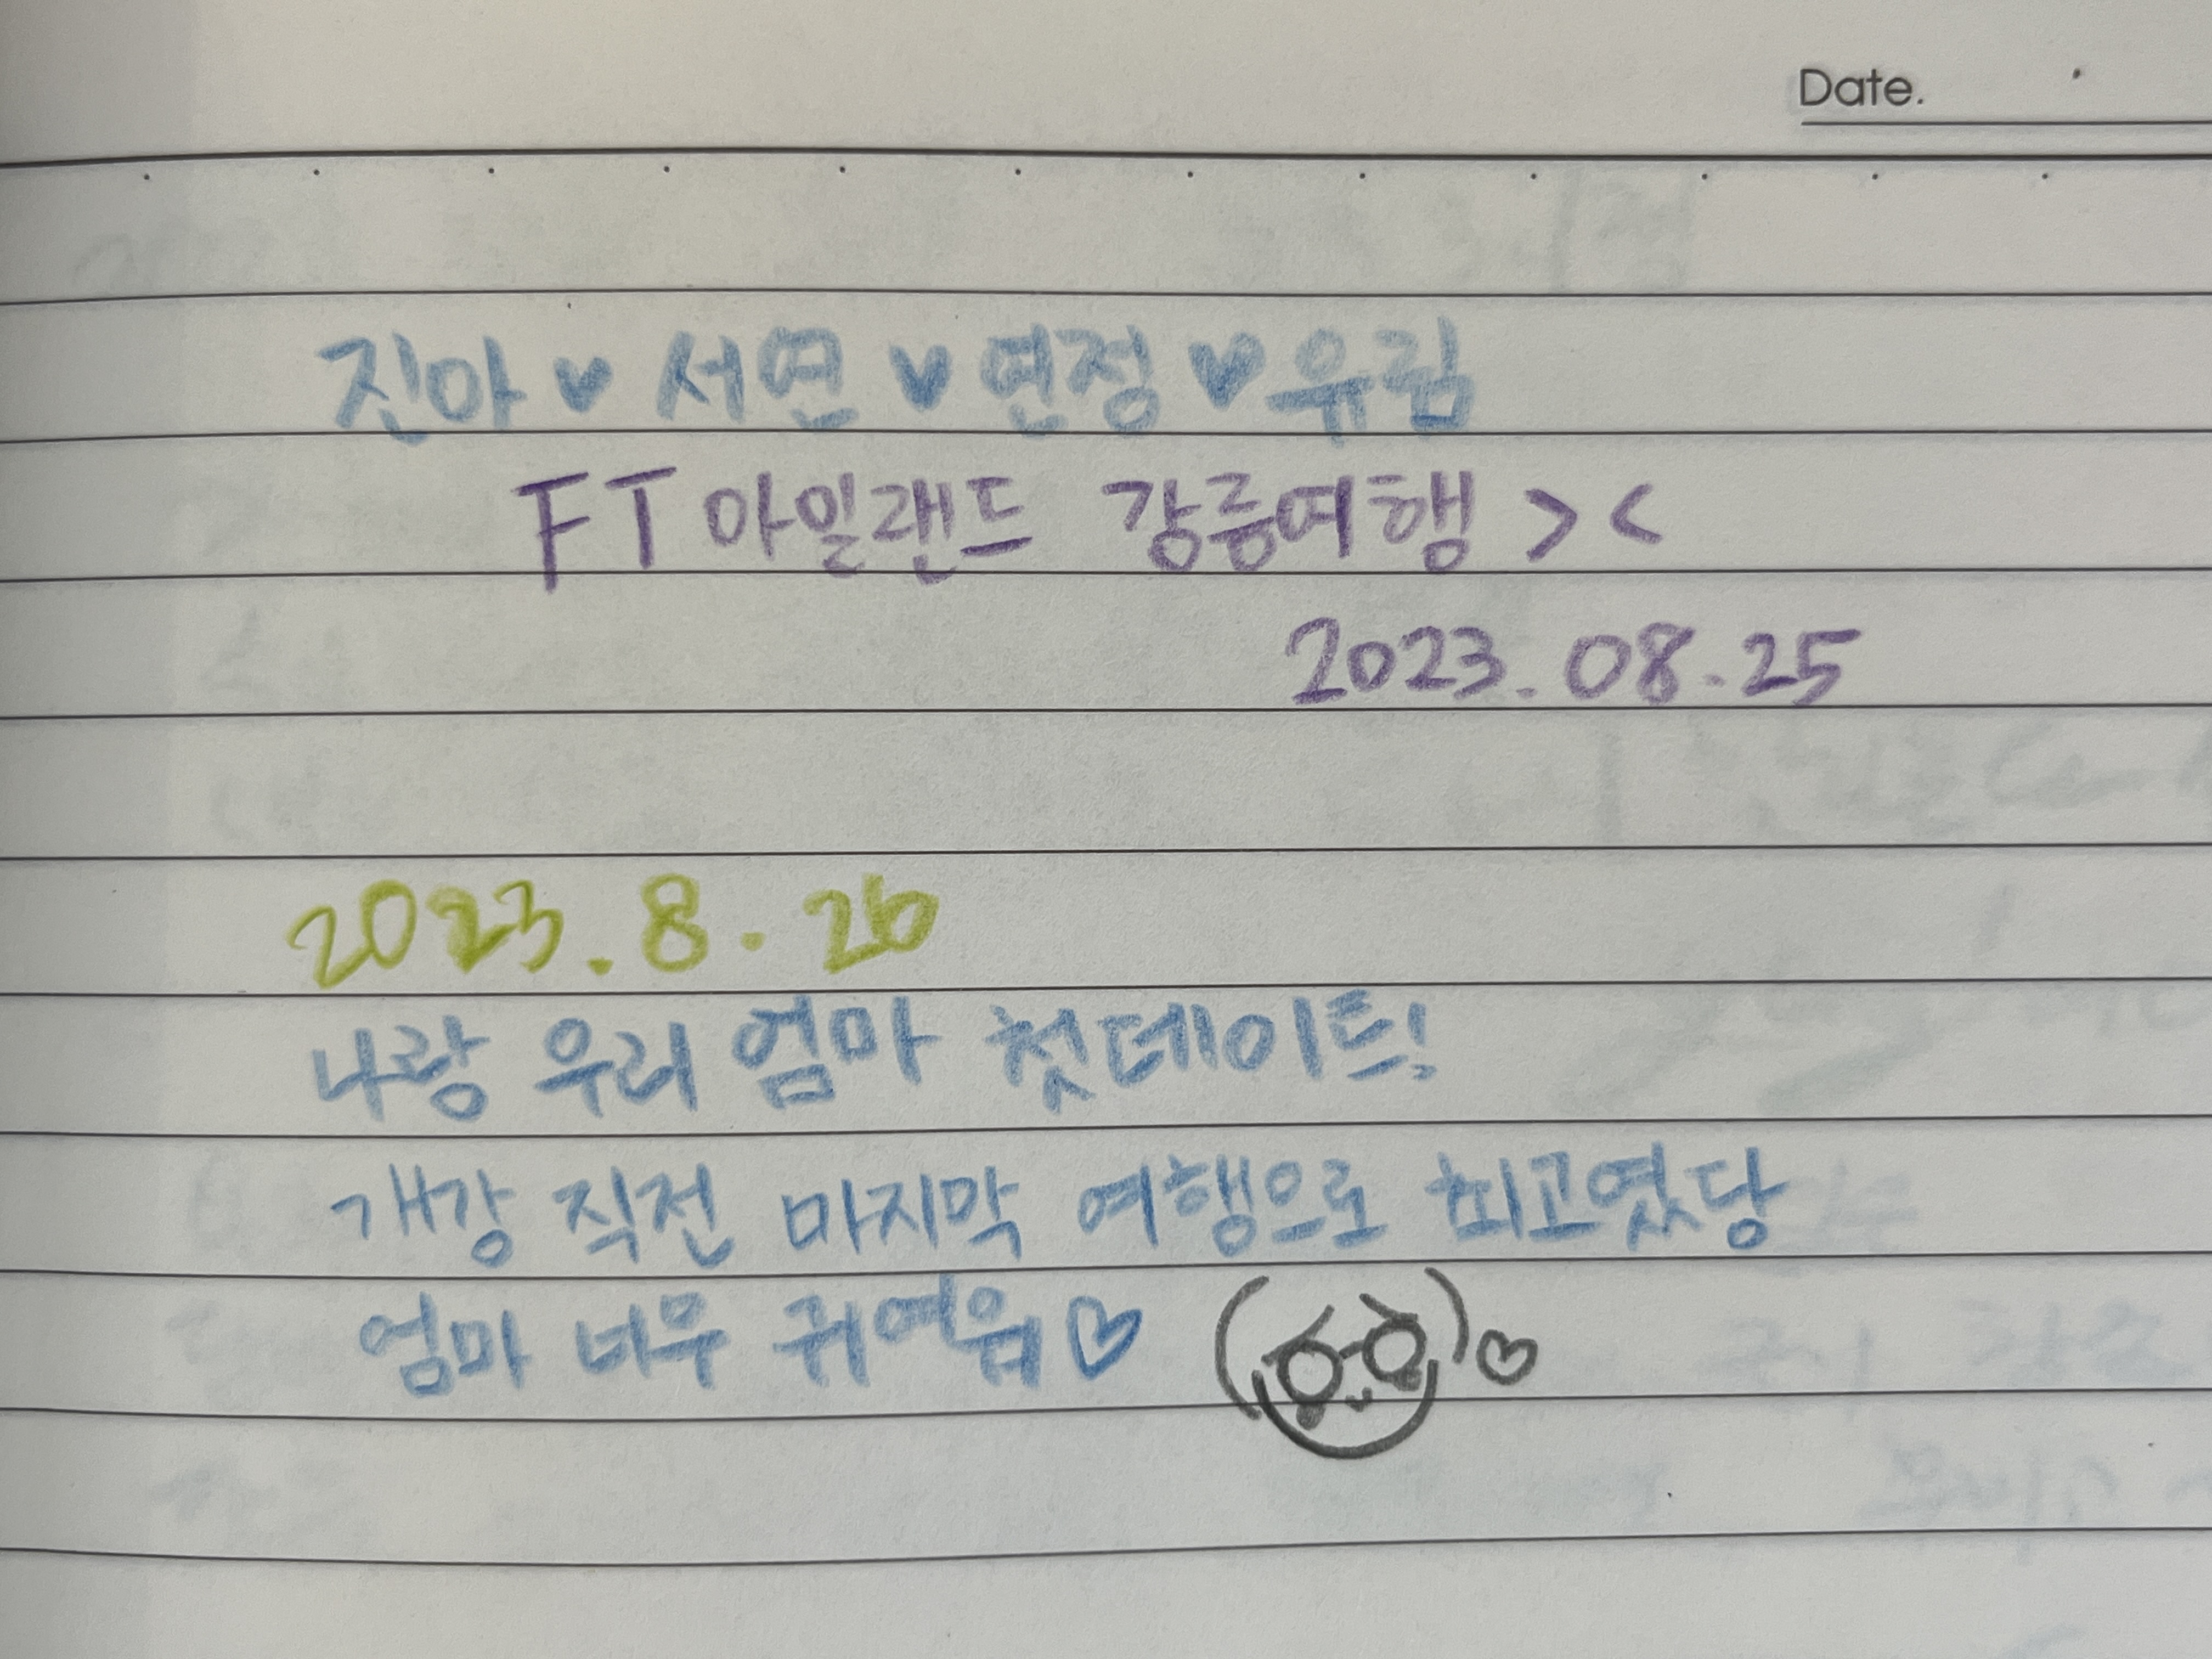 Date.
진아 ♥ 서연 ♥ 연정 ♥ 유림
FT 아일랜드 강릉여행 > <
2023. 08. 25
2023. 8. 26
나랑 우리 엄마 첫데이트!
개강 직전 마지막 여행으로 최고였당
엄마 너무 귀여워♡